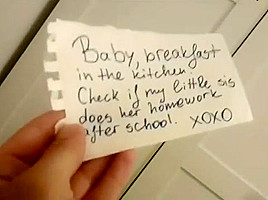 Baby, breakfast
in the kitchen.
Check if my little sis
does her homework
after school. XOXO